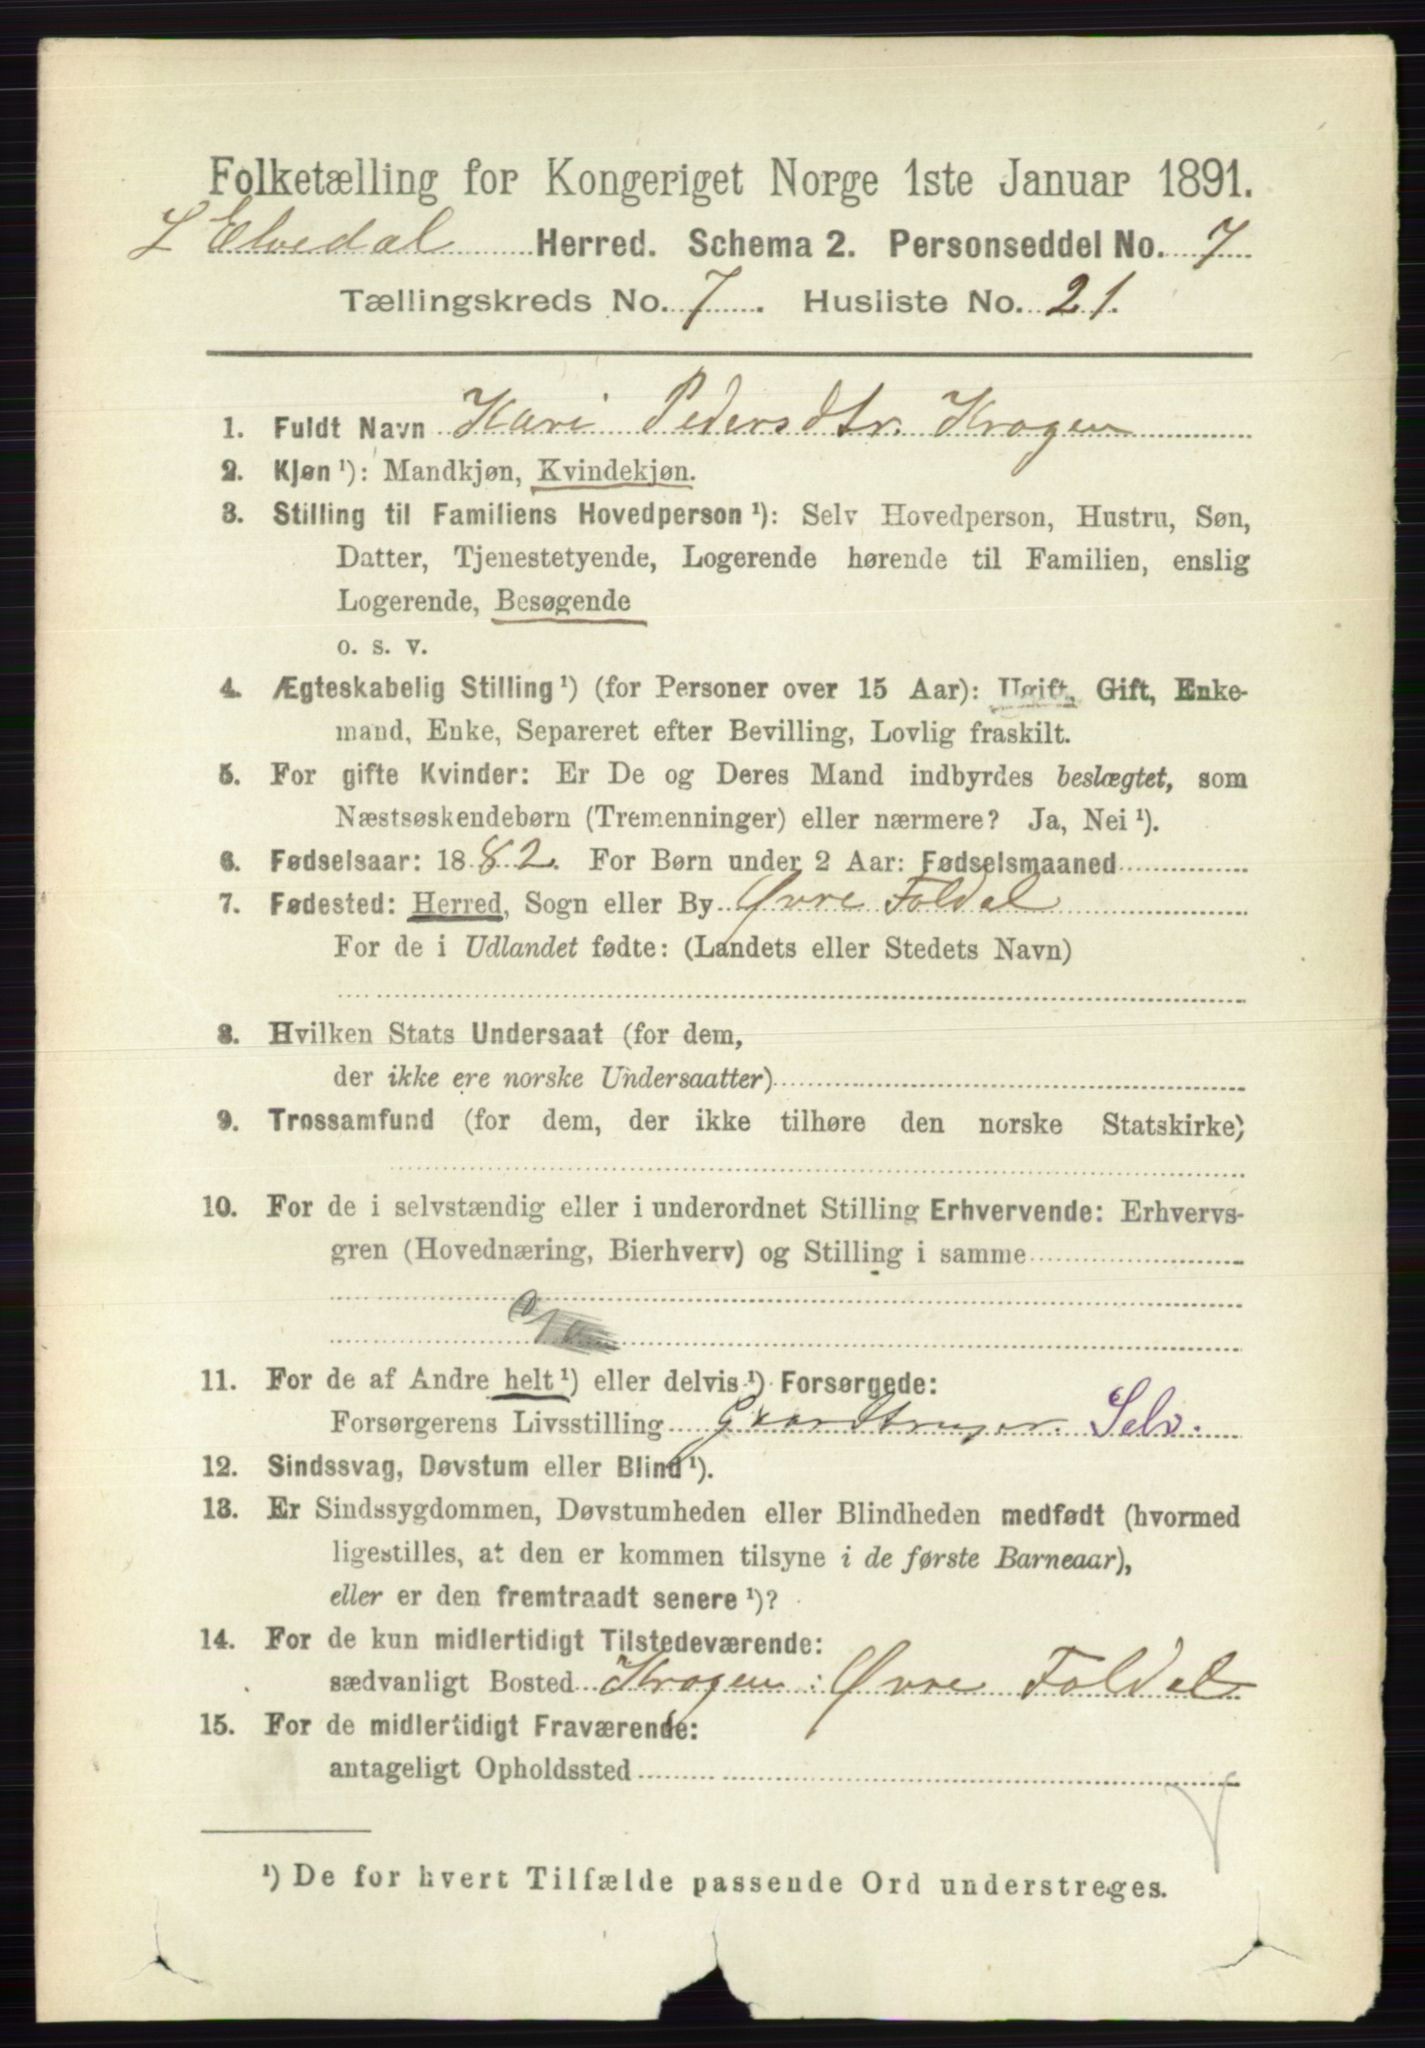 Folketælling for Kongeriget Norge 1ste Januar 1891.
L Elvedal Herred. Schema 2. Personseddel No. 7
Tællingskreds No. 7. Husliste No. 21.
1. Fuldt Navn Kari Pedersdtr. Krogen
2. Kjøn ¹): Mandkjøn, Kvindekjøn.
3. Stilling til Familiens Hovedperson ¹): Selv Hovedperson, Hustru, Søn,
Datter, Tjenestetyende, Logerende hørende til Familien, enslig
Logerende, Besøgende
o. s. v.
4. Ægteskabelig Stilling ¹) (for Personer over 15 Aar): Ugift, Gift, Enke-
mand, Enke, Separeret efter Bevilling, Lovlig fraskilt.
5. For gifte Kvinder: Er De og Deres Mand indbyrdes beslægtet, som
Næstsøskendebørn (Tremenninger) eller nærmere? Ja, Nei ¹).
6. Fødselsaar: 1882. For Børn under 2 Aar: Fødselsmaaned
7. Fødested: Herred, Sogn eller By Øvre Foldal
For de i Udlandet fødte: (Landets eller Stedets Navn)
8. Hvilken Stats Undersaat (for dem,
der ikke ere norske Undersaatter)
9. Trossamfund (for dem, der ikke tilhøre den norske Statskirke)
10. For de i selvstændig eller i underordnet Stilling Erhvervende: Erhvervs-
gren (Hovednæring, Bierhverv) og Stilling i samme
11. For de af Andre helt ¹) eller delvis ¹) Forsørgede:
Forsørgerens Livsstilling Gaardbruger. Selv.
12. Sindssvag, Døvstum eller Blind ¹).
13. Er Sindssygdommen, Døvstumheden eller Blindheden medfødt (hvormed
ligestilles, at den er kommen tilsyne i de første Barneaar),
eller er den fremtraadt senere ¹)?
14. For de kun midlertidigt Tilstedeværende:
sædvanligt Bosted Krogen: Øvre Foldal
15. For de midlertidigt Fraværende:
antageligt Opholdssted
¹) De for hvert Tilfælde passende Ord understreges.